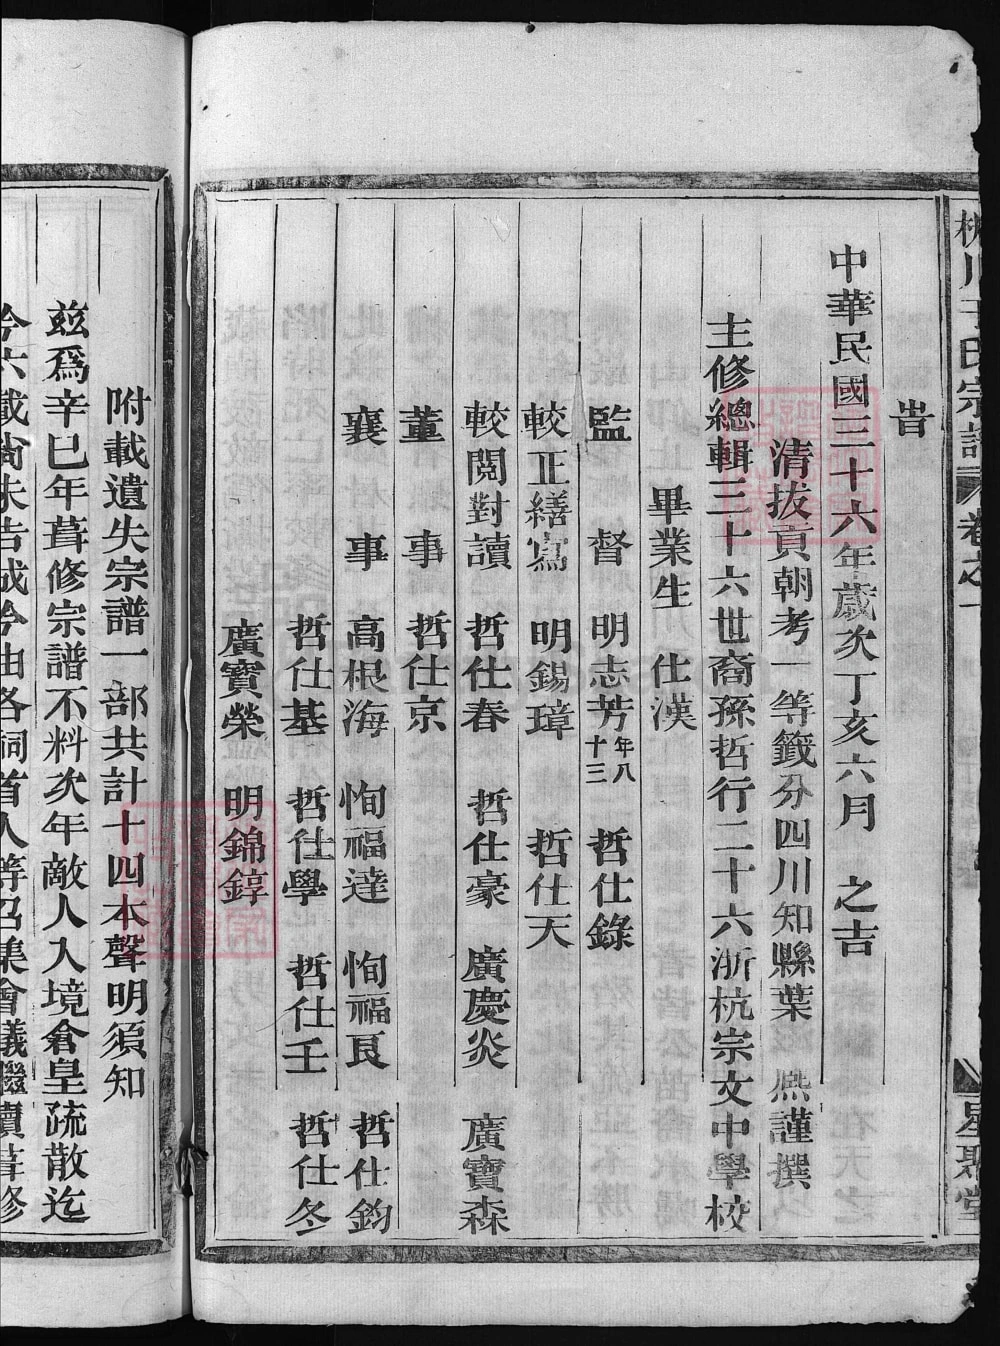 桃川于氏宗譜 卷之一 星聚堂
旹
中華民國三十六年歲次丁亥六月 之吉
清拔貢朝考一等籤分四川知縣葉 熈謹撰
主修總輯三十六世裔孫哲行二十六浙杭宗文中學校
畢業生 仕漢
監 督 明志芳年八十三 哲仕錄
較正繕寫 明錫璋 哲仕天
較閱對讀 哲仕春 哲仕豪 廣慶炎 廣寶森
董 事 哲仕京
襄 事 高根海 恂福達 恂福良 哲仕鈞
哲仕基 哲仕學 哲仕壬 哲仕冬
廣寶榮 明錦錞
附載遺失宗譜一部共計十四本聲明須知
玆爲辛巳年葺修宗譜不料次年敵人入境倉皇疏散迄
今六載尙未告成今由各祠首人等召集會議繼續葺修